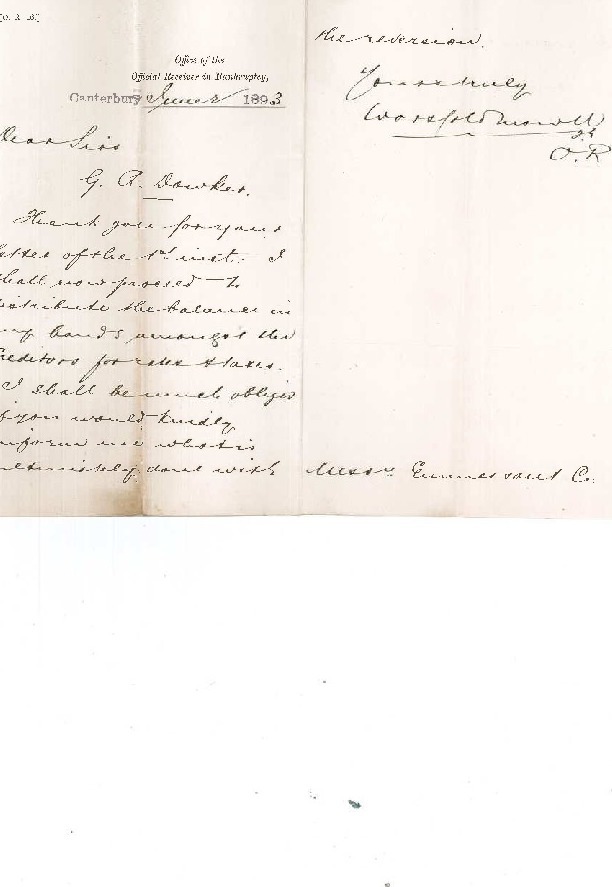 [O. R. 16.]
Office of the
Official Receiver in Bankruptcy,
Canterbury June 2 1893
Dear Sirs
G. A. Dowker.
Thank you for your
letter of the 1st inst. I
shall now proceed to
distribute the balance in
my hands amongst the
Creditors for rates & taxes.
I shall be much obliged
if you would kindly
inform me what is
ultimately done with
Messrs Emmerson & Co.
the reversion.
Yours truly
Worsfold Mowll
O.R